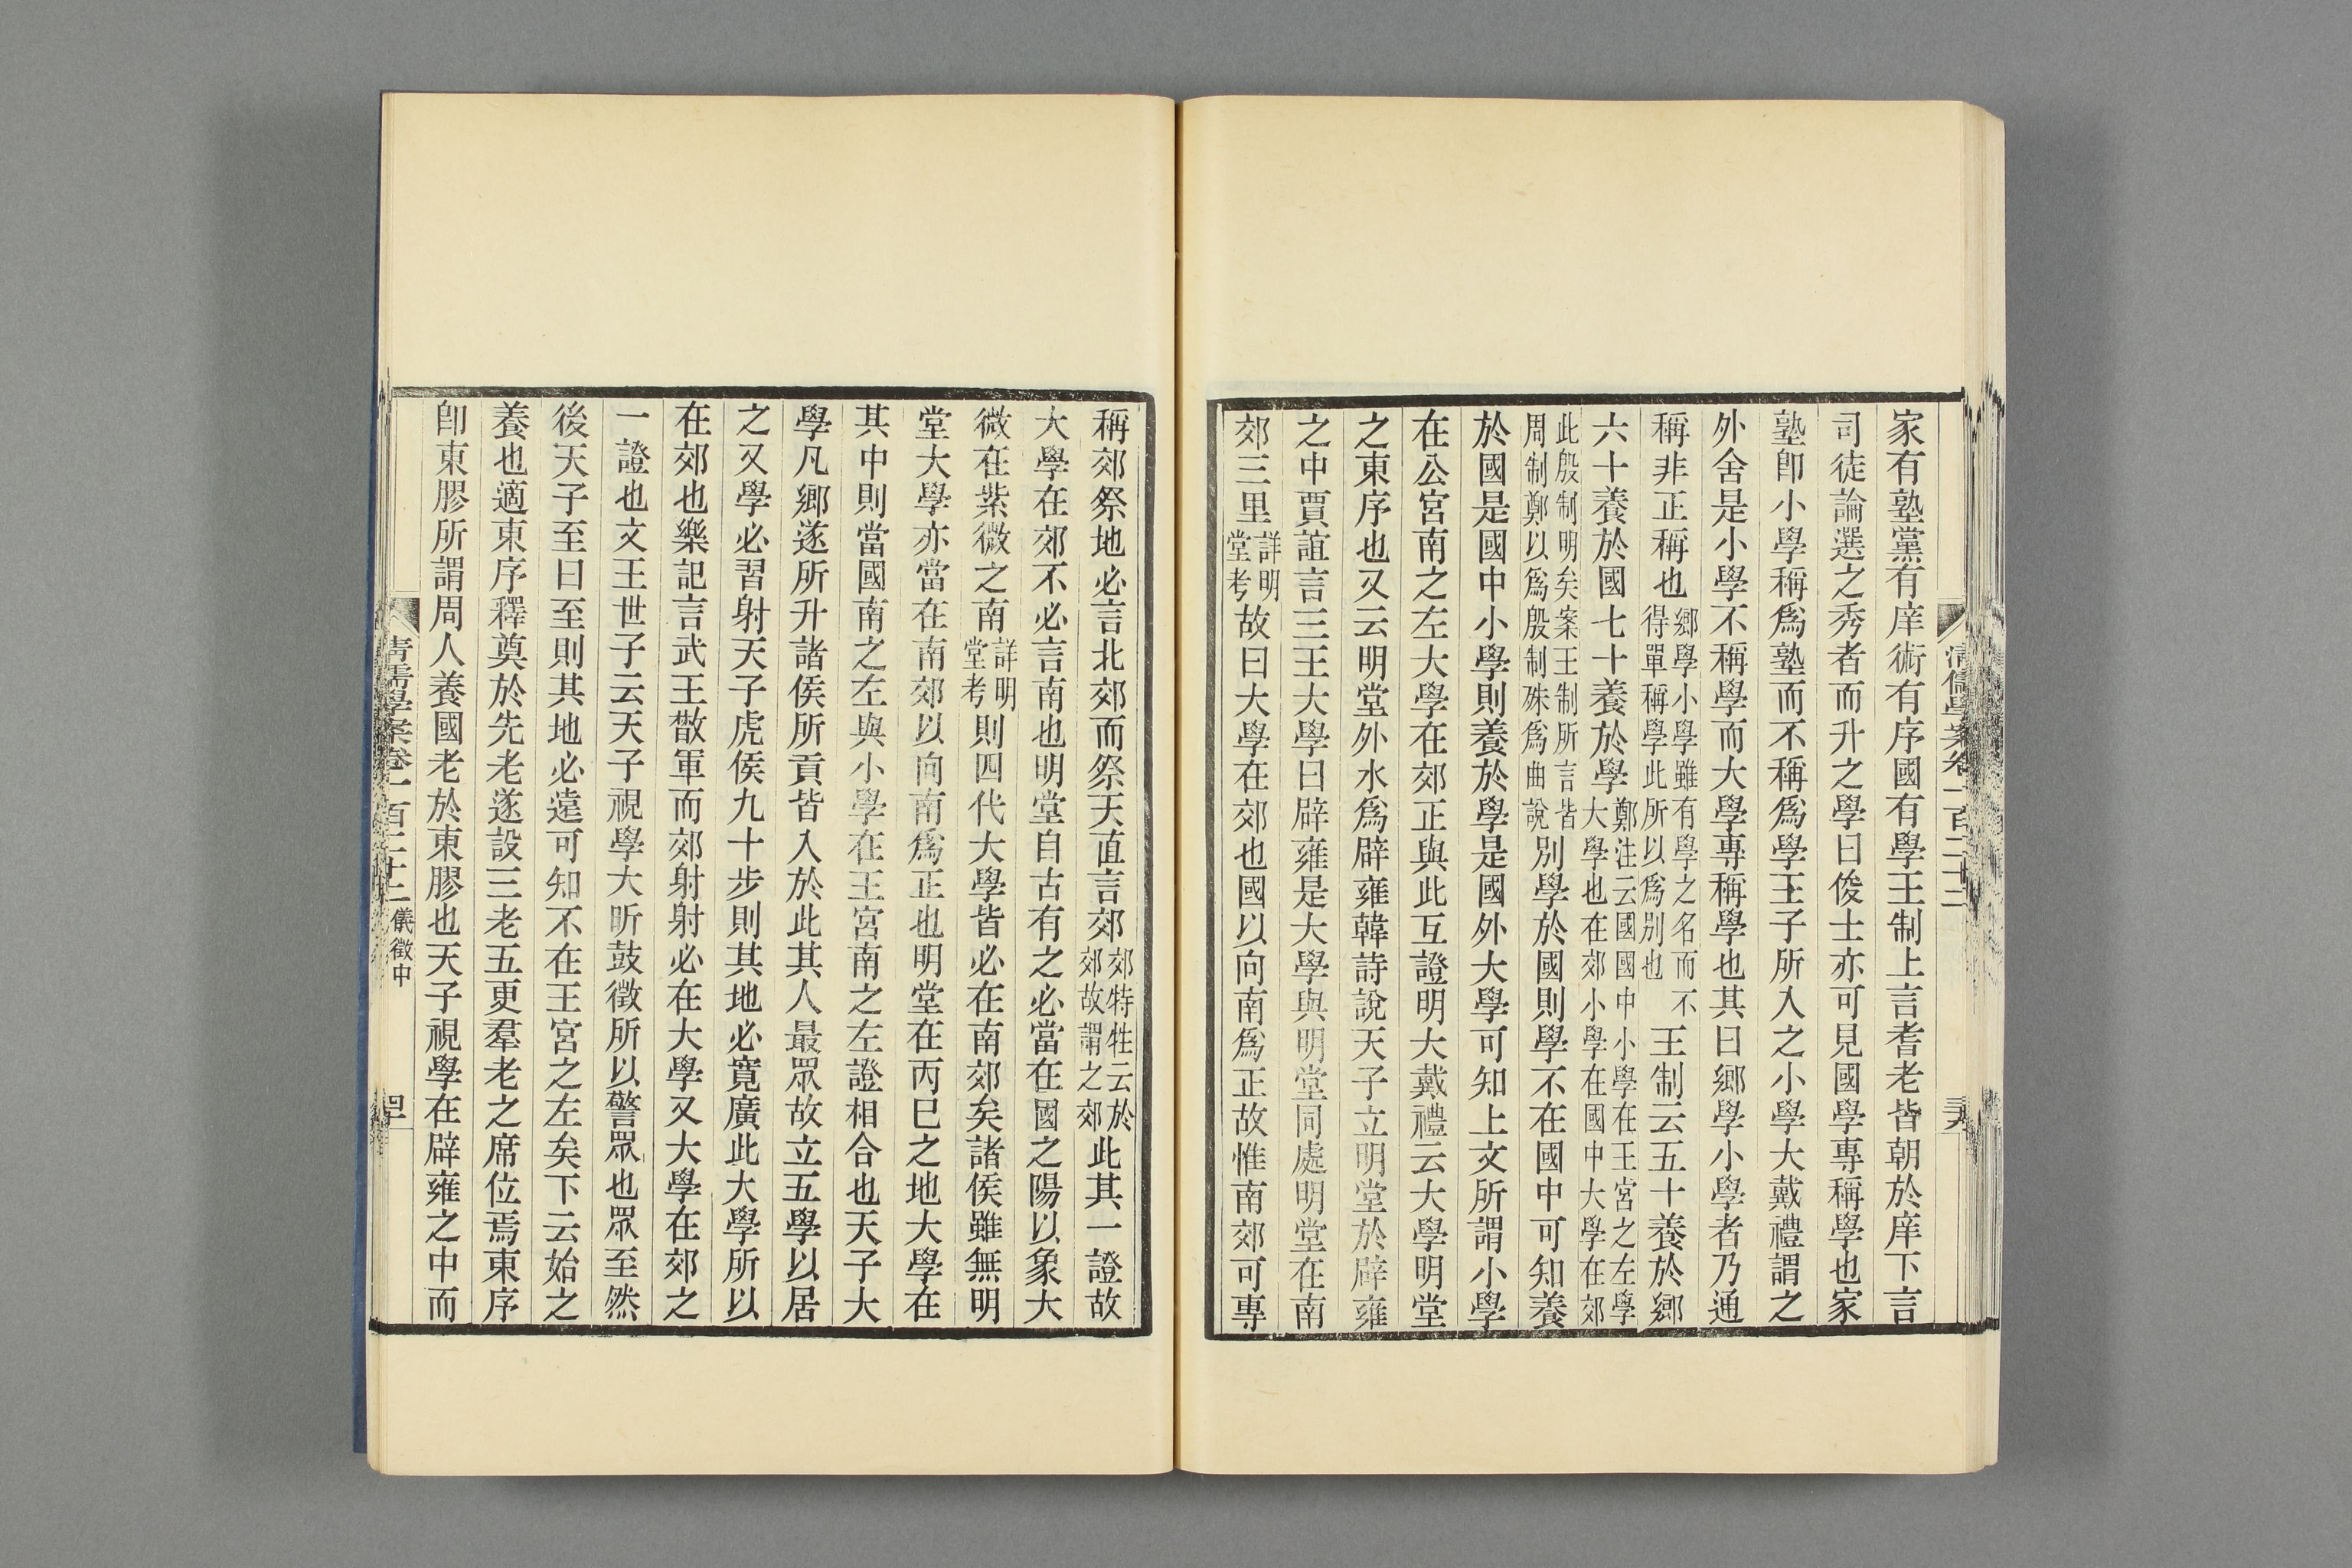 清儒學案卷一百二十二
家有塾黨有庠術有序國有學王制上言耆老皆朝於庠下言
司徒論選之秀者而升之學曰俊士亦可見國學專稱學也家
塾卽小學稱爲塾而不稱爲學王子所入之小學大戴禮謂之
外舍是小學不稱學而大學專稱學也其曰鄉學小學者乃通
稱非正稱也鄉學小學雖有學之名而不得單稱學此所以爲別也王制云五十養於鄉
六十養於國七十養於學鄭注云國國中小學在王宮之左學大學也在郊小學在國中大學在郊
此殷制明矣案王制所言皆周制鄭以爲殷制殊爲曲說別學於國則學不在國中可知養
於國是國中小學則養於學是國外大學可知上文所謂小學
在公宮南之左大學在郊正與此互證明大戴禮云大學明堂
之東序也又云明堂外水爲辟雍韓詩說天子立明堂於辟雍
之中賈誼言三王大學曰辟雍是大學與明堂同處明堂在南
郊三里詳明堂考故曰大學在郊也國以向南爲正故惟南郊可專
稱郊祭地必言北郊而祭天直言郊郊特牲云於郊故謂之郊此其一證故
大學在郊不必言南也明堂自古有之必當在國之陽以象大
微在紫微之南詳明堂考則四代大學皆必在南郊矣諸侯雖無明
堂大學亦當在南郊以向南爲正也明堂在丙巳之地大學在
其中則當國南之左與小學在王宮南之左證相合也天子大
學凡鄉遂所升諸侯所貢皆入於此其人最眾故立五學以居
之又學必習射天子虎侯九十步則其地必寬廣此大學所以
在郊也樂記言武王散軍而郊射射必在大學又大學在郊之
一證也文王世子云天子視學大昕鼓徵所以警眾也眾至然
後天子至曰至則其地必遠可知不在王宮之左矣下云始之
養也適東序釋奠於先老遂設三老五更羣老之席位焉東序
卽東膠所謂周人養國老於東膠也天子視學在辟雍之中而
清儒學案卷一百二十二 儀徵中